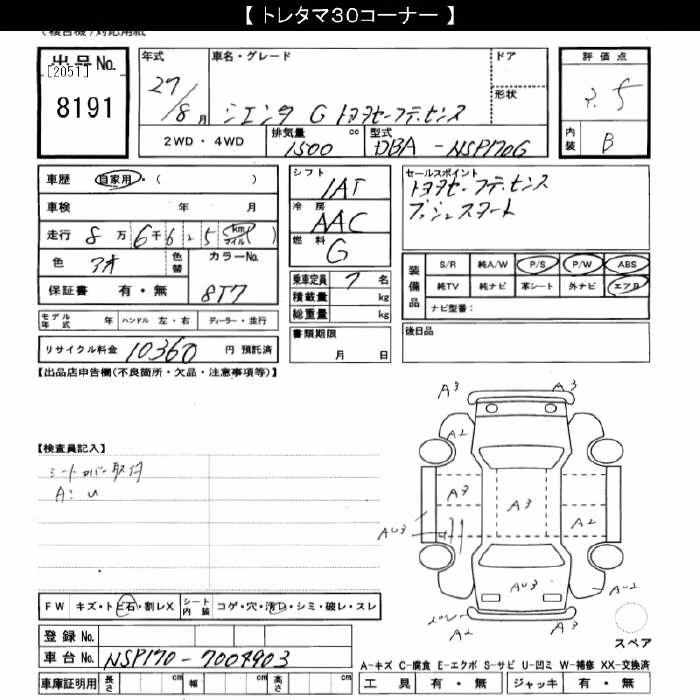 【 トレタマ30コーナー 】
(複合機)対応用紙
出品No.
[2051]
8191
年式
27/8月
車名・グレード
シエンタ G トヨタセーフティセンス
ドア
形状
2WD・4WD
排気量 cc
1500
型式
DBA-NSP170G
評価点
3.5
内装
B
車歴 自家用・( )
車検 年 月
走行 8万6千625 (km マイル)
色 アオ 色替
カラーNo.
8T7
保証書 有・無
モデル年式 年 ハンドル 左・右 ディーラー・並行
リサイクル料金 10360 円 預託済
シフト
1AT
冷房
AAC
燃料
G
乗車定員 7 名
積載量 kg
総重量 kg
書類期限
月 日
セールスポイント
トヨタセーフティセンス
プッシュスタート
装備品
S/R 純A/W P/S P/W ABS
純TV 純ナビ 革シート 外ナビ エアB
ナビ型番:
後日品
【出品店申告欄(不良箇所・欠品・注意事項等)】
【検査員記入】
シートカバー取付
A:U
A3 A3
A2
A3 A3 A2
AU3
AU3
A2 A2
スペア
FW キズ・トビ石・割レX
シート内装 コゲ・穴・汚レ・シミ・破レ・スレ
登録No.
車台No. NSP170-7004903
A-キズ C-腐食 E-エクボ S-サビ U-凹ミ W-補修 XX-交換済
車庫証明用 長さ cm 幅 cm 高さ cm
工具 有・無 ジャッキ 有・無